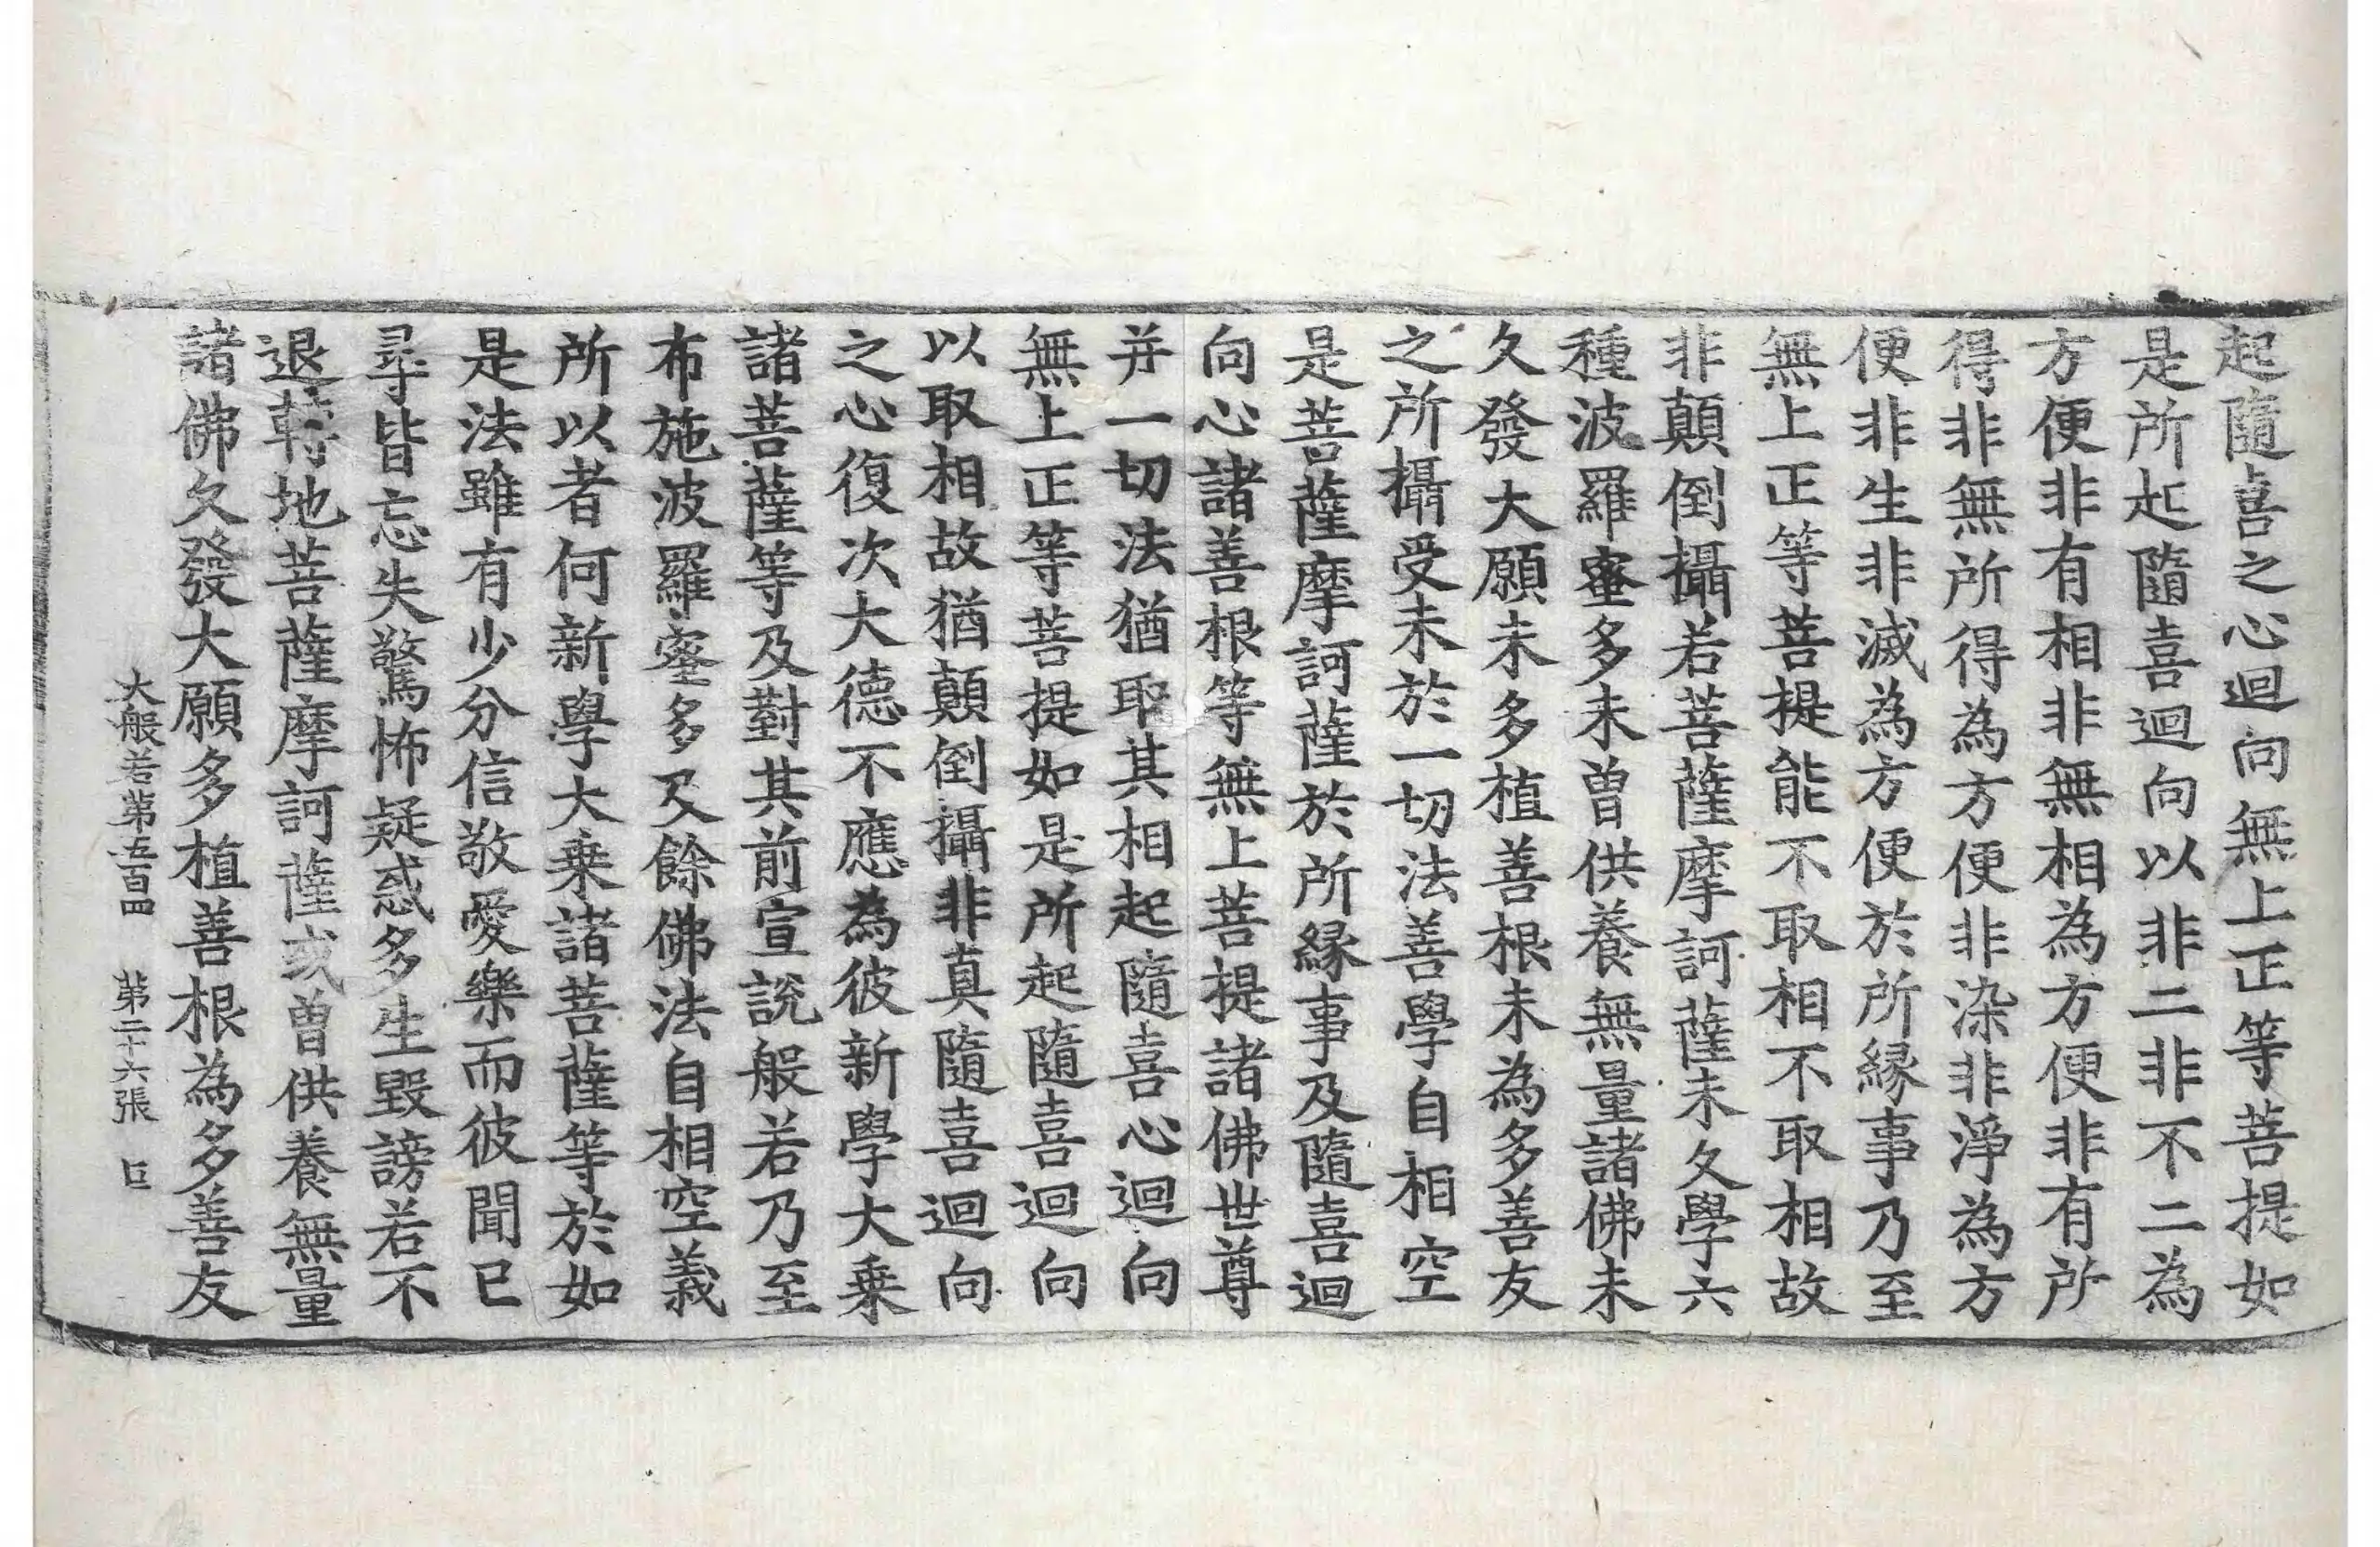 起隨喜之心迴向無上正等菩提如
是所起隨喜迴向以非二非不二為
方便非有相非無相為方便非有所
得非無所得為方便非染非淨為方
便非生非滅為方便於所縁事乃至
無上正等菩提能不取相不取相故
非顛倒攝若菩薩摩訶薩未久學六
種波羅蜜多未曾供養無量諸佛未
久發大願未多植善根未為多善友
之所攝受未於一切法善學自相空
是菩薩摩訶薩於所縁事及隨喜迴
向心諸善根等無上菩提諸佛世尊
并一切法猶取其相起隨喜心迴向
無上正等菩提如是所起隨喜迴向
以取相故猶顛倒攝非真隨喜迴向
之心復次大德不應為彼新學大乗
諸菩薩等及對其前宣說般若乃至
布施波羅蜜多及餘佛法自相空義
所以者何新學大乗諸菩薩等於如
是法雖有少分信敬愛樂而彼聞已
尋皆忘失驚怖疑惑多生毀謗若不
退轉地菩薩摩訶薩或曾供養無量
諸佛久發大願多植善根為多善友
大般若第五百四 第二十六張 巨